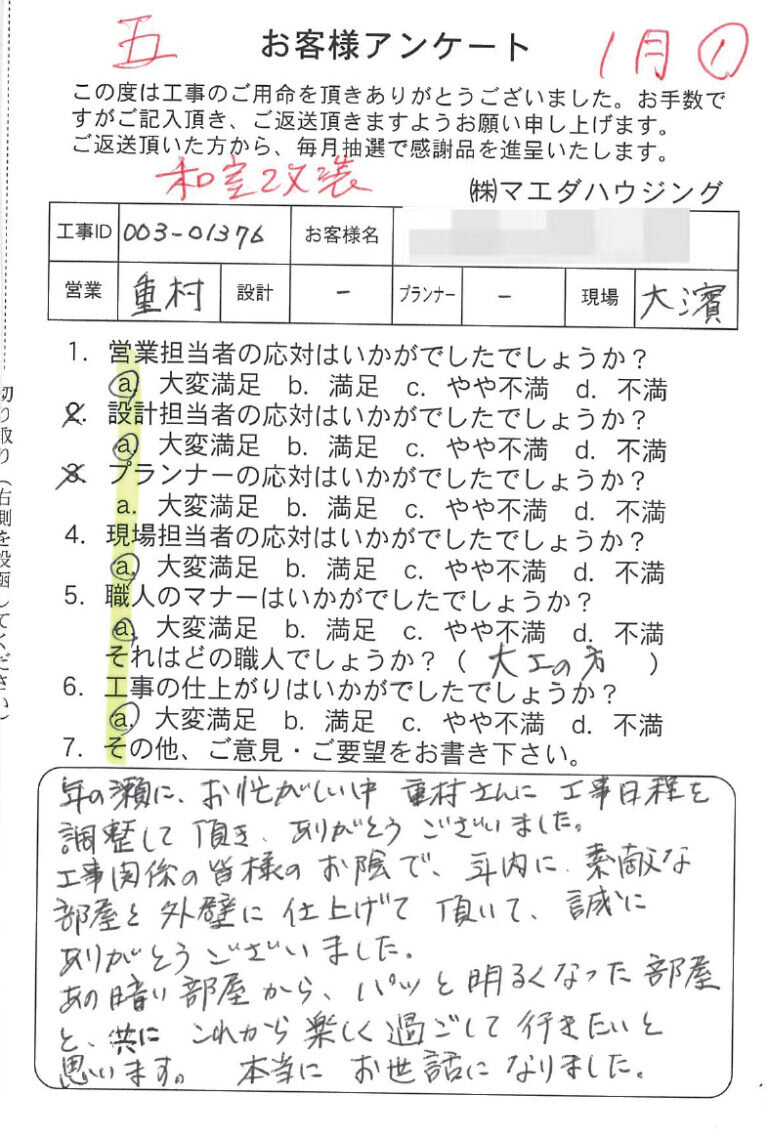 五 お客様アンケート 1月①
この度は工事のご用命を頂きありがとうございました。お手数で
すがご記入頂き、ご返送頂きますようお願い申し上げます。
ご返送頂いた方から、毎月抽選で感謝品を進呈いたします。
和室改装 ㈱マエダハウジング
工事ID 003-01376 お客様名
営業 重村 設計 - プランナー - 現場 大濱
1. 営業担当者の応対はいかがでしたでしょうか?
a. 大変満足 b. 満足 c. やや不満 d. 不満
2. 設計担当者の応対はいかがでしたでしょうか?
a. 大変満足 b. 満足 c. やや不満 d. 不満
3. プランナーの応対はいかがでしたでしょうか?
a. 大変満足 b. 満足 c. やや不満 d. 不満
4. 現場担当者の応対はいかがでしたでしょうか?
a. 大変満足 b. 満足 c. やや不満 d. 不満
5. 職人のマナーはいかがでしたでしょうか?
a. 大変満足 b. 満足 c. やや不満 d. 不満
それはどの職人でしょうか?( 大工の方 )
6. 工事の仕上がりはいかがでしたでしょうか?
a. 大変満足 b. 満足 c. やや不満 d. 不満
7. その他、ご意見・ご要望をお書き下さい。
年の瀬に、お忙がしい中 重村さんに 工事日程を
調整して頂き、ありがとうございました。
工事関係の皆様のお陰で、年内に 素敵な
部屋と外壁に仕上げて頂いて、誠に
ありがとうございました。
あの暗い部屋から、パッと明るくなった部屋
と、共に これから楽しく過ごして行きたいと
思います。 本当に お世話になりました。
切り取り(右側を投函してください)